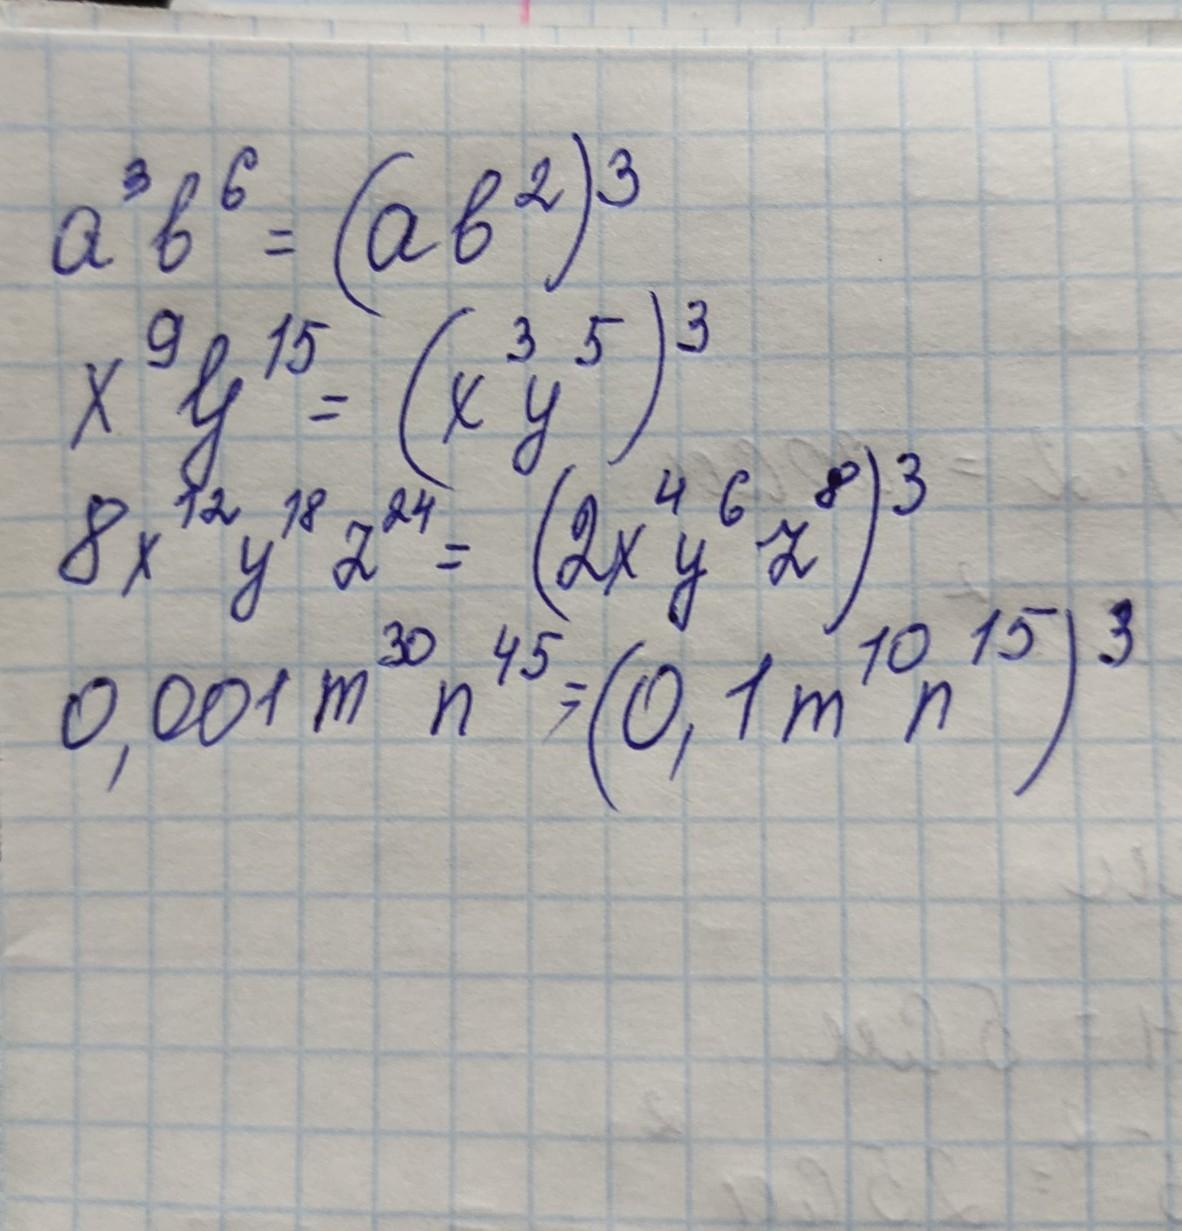 a³b⁶ = (ab²)³
x⁹y¹⁵ = (x³y⁵)³
8x¹²y¹⁸z²⁴ = (2x⁴y⁶z⁸)³
0,001m³⁰n⁴⁵ = (0,1m¹⁰n¹⁵)³